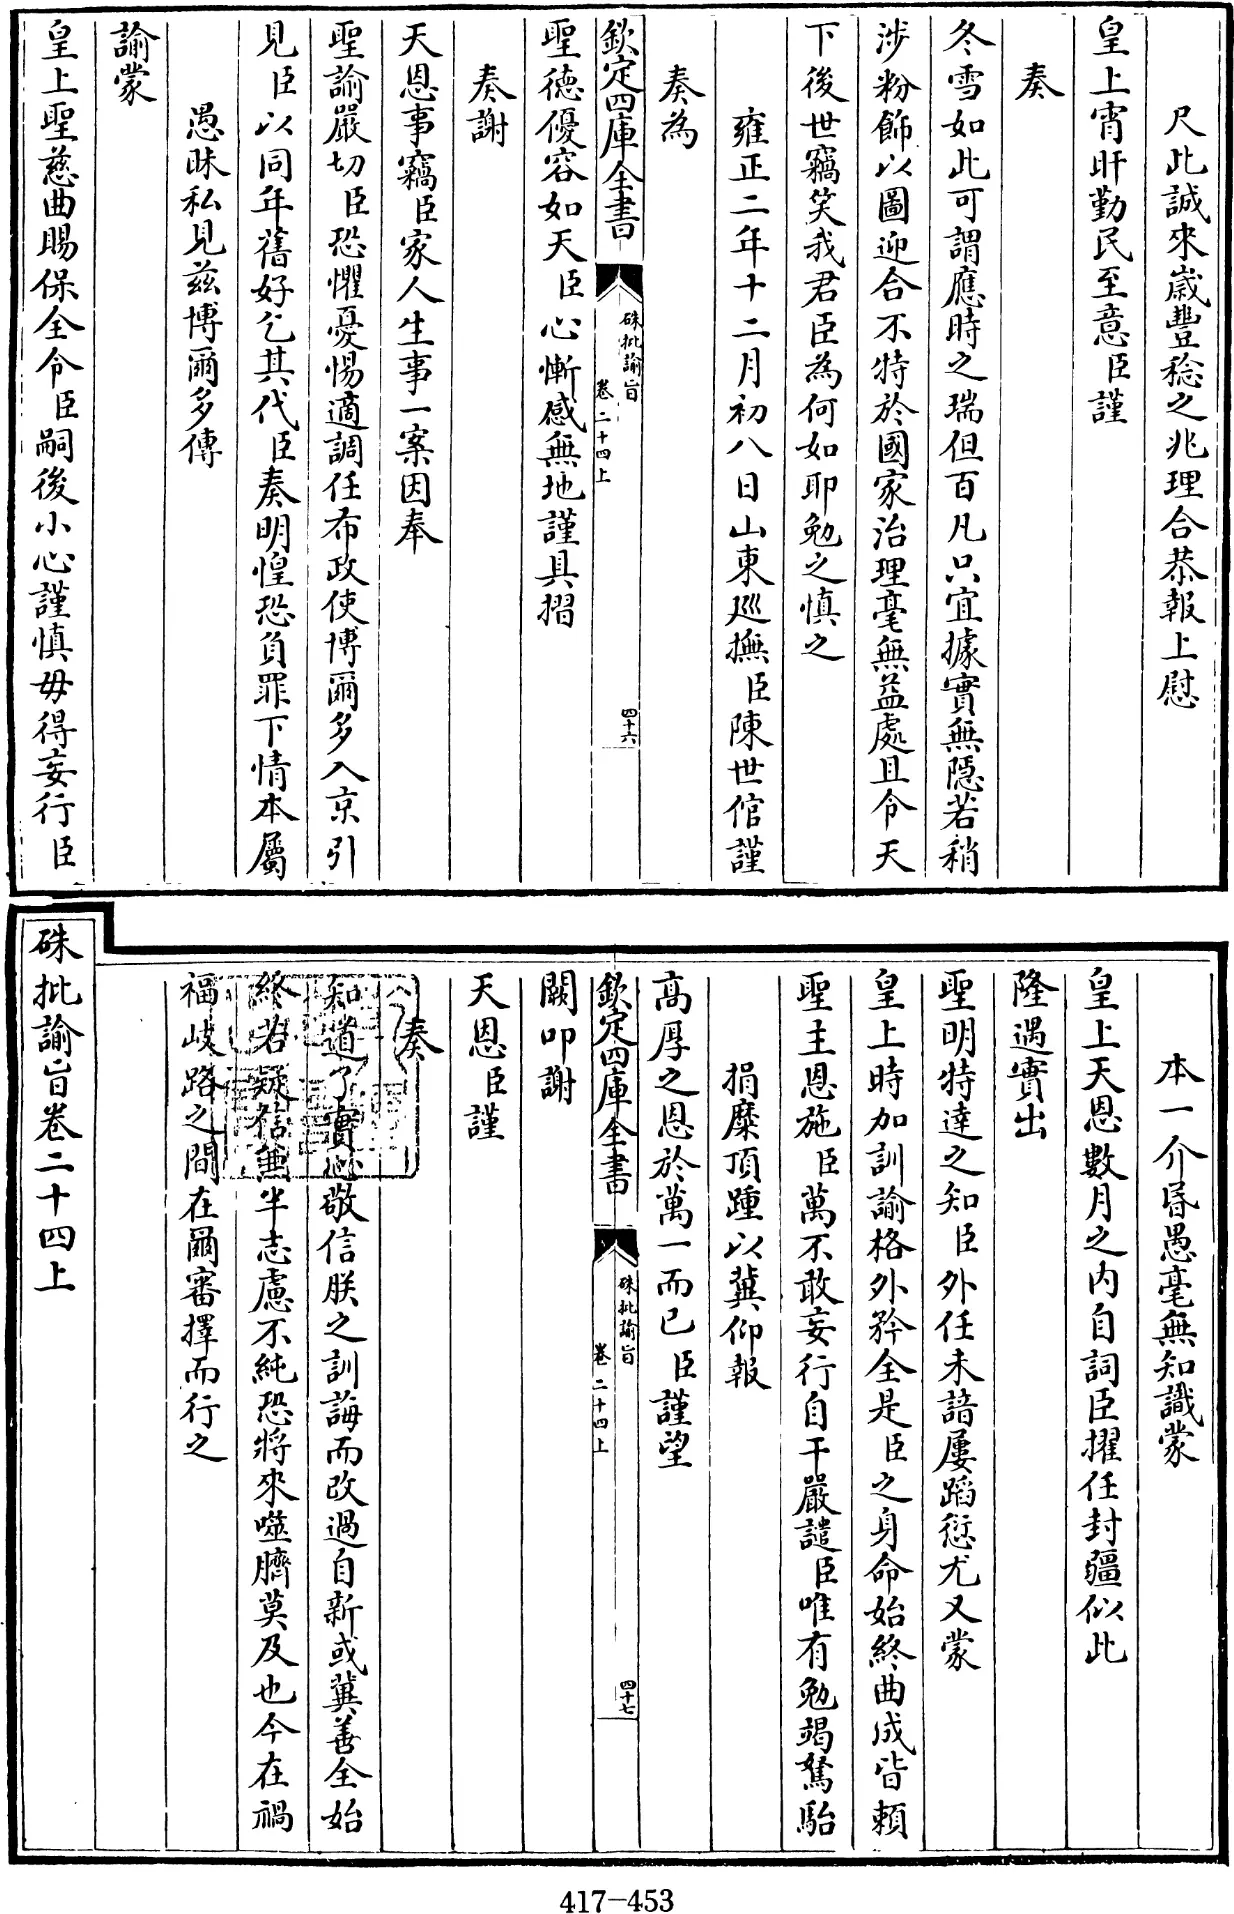 尺此誠來歲豐稔之兆理合恭報上慰
皇上宵旰勤民至意臣謹
奏
冬雪如此可謂應時之瑞但百凡只宜據實無隱若稍
涉粉飾以圖迎合不特於國家治理毫無益處且令天
下後世竊笑我君臣為何如耶勉之慎之
雍正二年十二月初八日山東廵撫臣陳世倌謹
奏為
欽定四庫全書
硃批諭旨
卷二十四上
四十六
聖德優容如天臣心慚感無地謹具摺
奏謝
天恩事竊臣家人生事一案因奉
聖諭嚴切臣恐懼憂惕適調任布政使博爾多入京引
見臣以同年舊好乞其代臣奏明惶恐負罪下情本屬
愚昧私見茲博爾多傳
諭蒙
皇上聖慈曲賜保全令臣嗣後小心謹慎毋得妄行臣
本一介昏愚毫無知識蒙
皇上天恩數月之內自詞臣擢任封疆似此
隆遇實出
聖明特達之知臣外任未諳屢蹈愆尤又蒙
皇上時加訓諭格外矜全是臣之身命始終曲成皆賴
聖主恩施臣萬不敢妄行自干嚴譴臣唯有勉竭駑駘
捐糜頂踵以冀仰報
高厚之恩於萬一而已臣謹望
欽定四庫全書
硃批諭旨
卷二十四上
四十七
闕叩謝
天恩臣謹
奏
知道了實心敬信朕之訓誨而改過自新或冀善全始
終若疑信兼半志慮不純恐將來噬臍莫及也今在禍
福岐路之間在爾審擇而行之
硃批諭旨卷二十四上
417-453